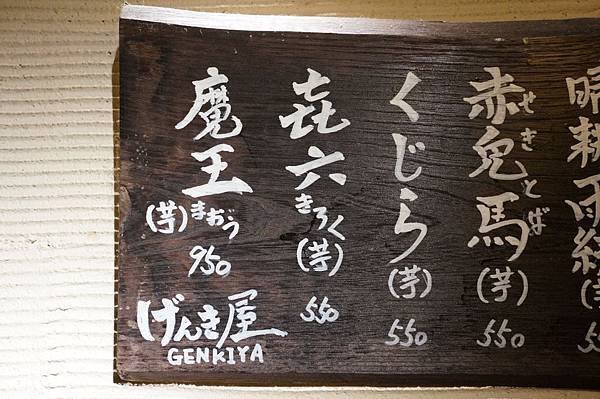 晴耕雨
(芋)
赤兔馬
せきとば
(芋)
550
くじら
(芋)
550
㐂六
きろく
(芋)
550
魔王
まおう
(芋)
950
げんき屋
GENKIYA